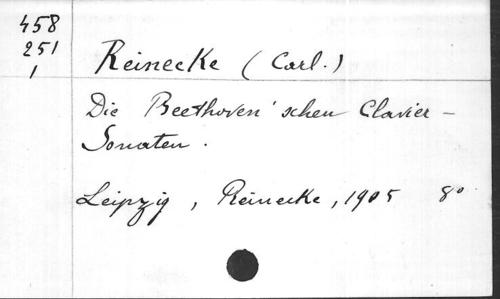 458
251
1
Reinecke (Carl.)
Die Beethoven'schen Clavier-
Sonaten.
Leipzig, Reinecke, 1905 8°